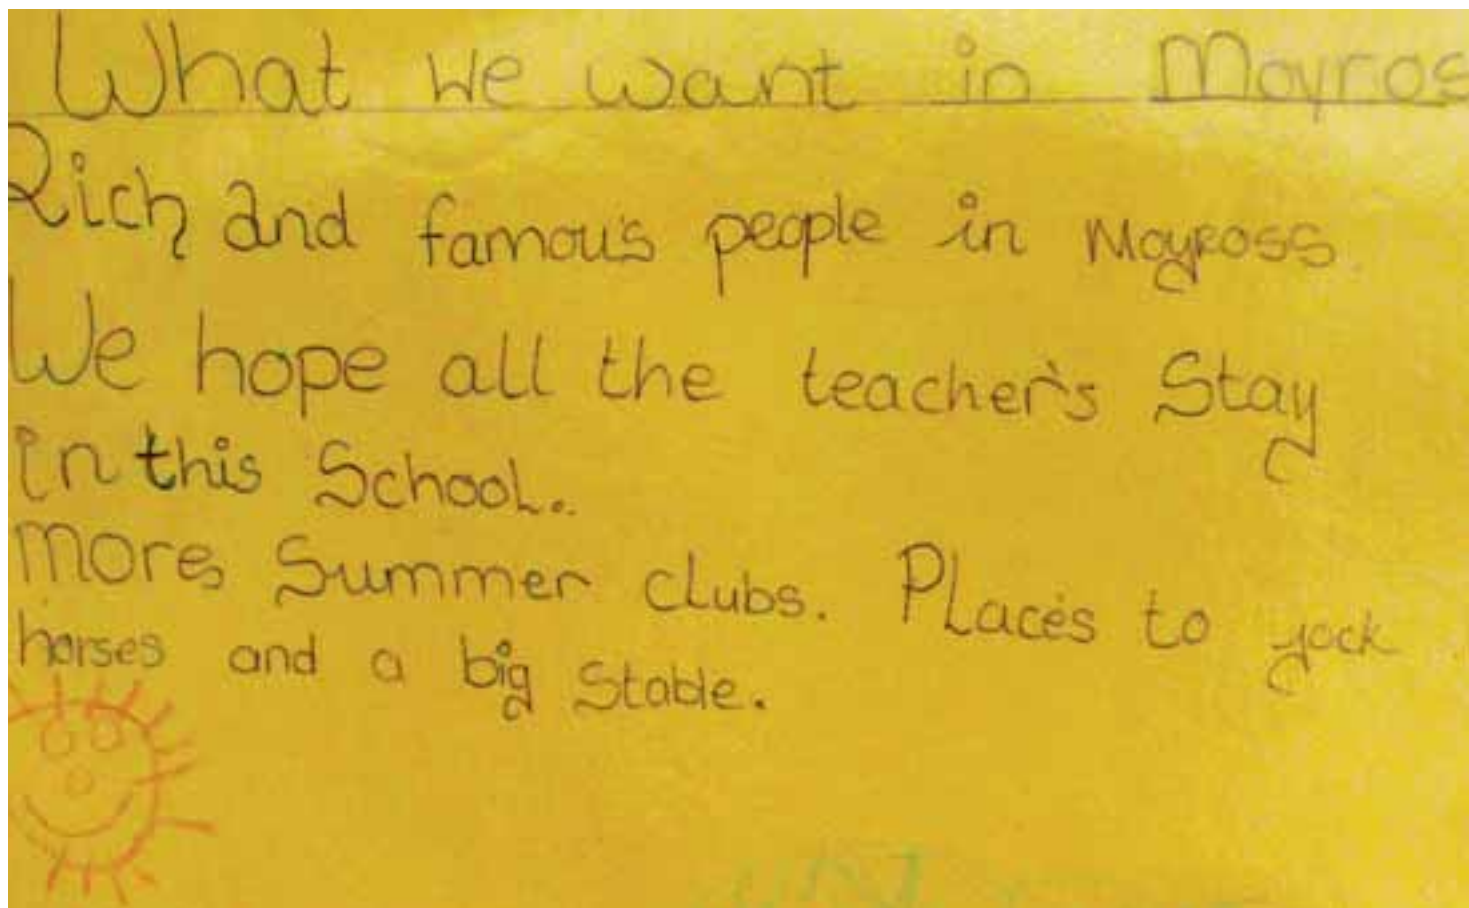 What we want in Moyros
Rich and famous people in Moyross.
We hope all the teacher's Stay
in this School..
More Summer clubs. Places to yock
horses and a big Stable.